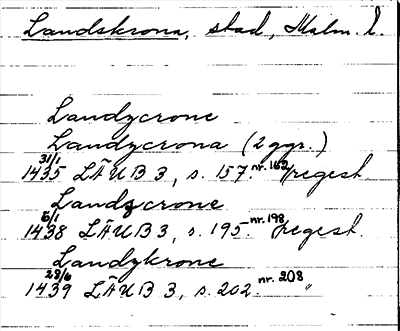 Landskrona, stad, Malm. l.
Landzcrone
Landzcrona (2 ggr.)
31/1 1435 LÄUB 3, s. 157. nr. 162 /regest.
Landzcrone
5/1 1438 LÄUB 3, s. 195. nr. 198 /regest.
Landzkrone
28/6 1439 LÄUB 3, s. 202. nr. 208 "